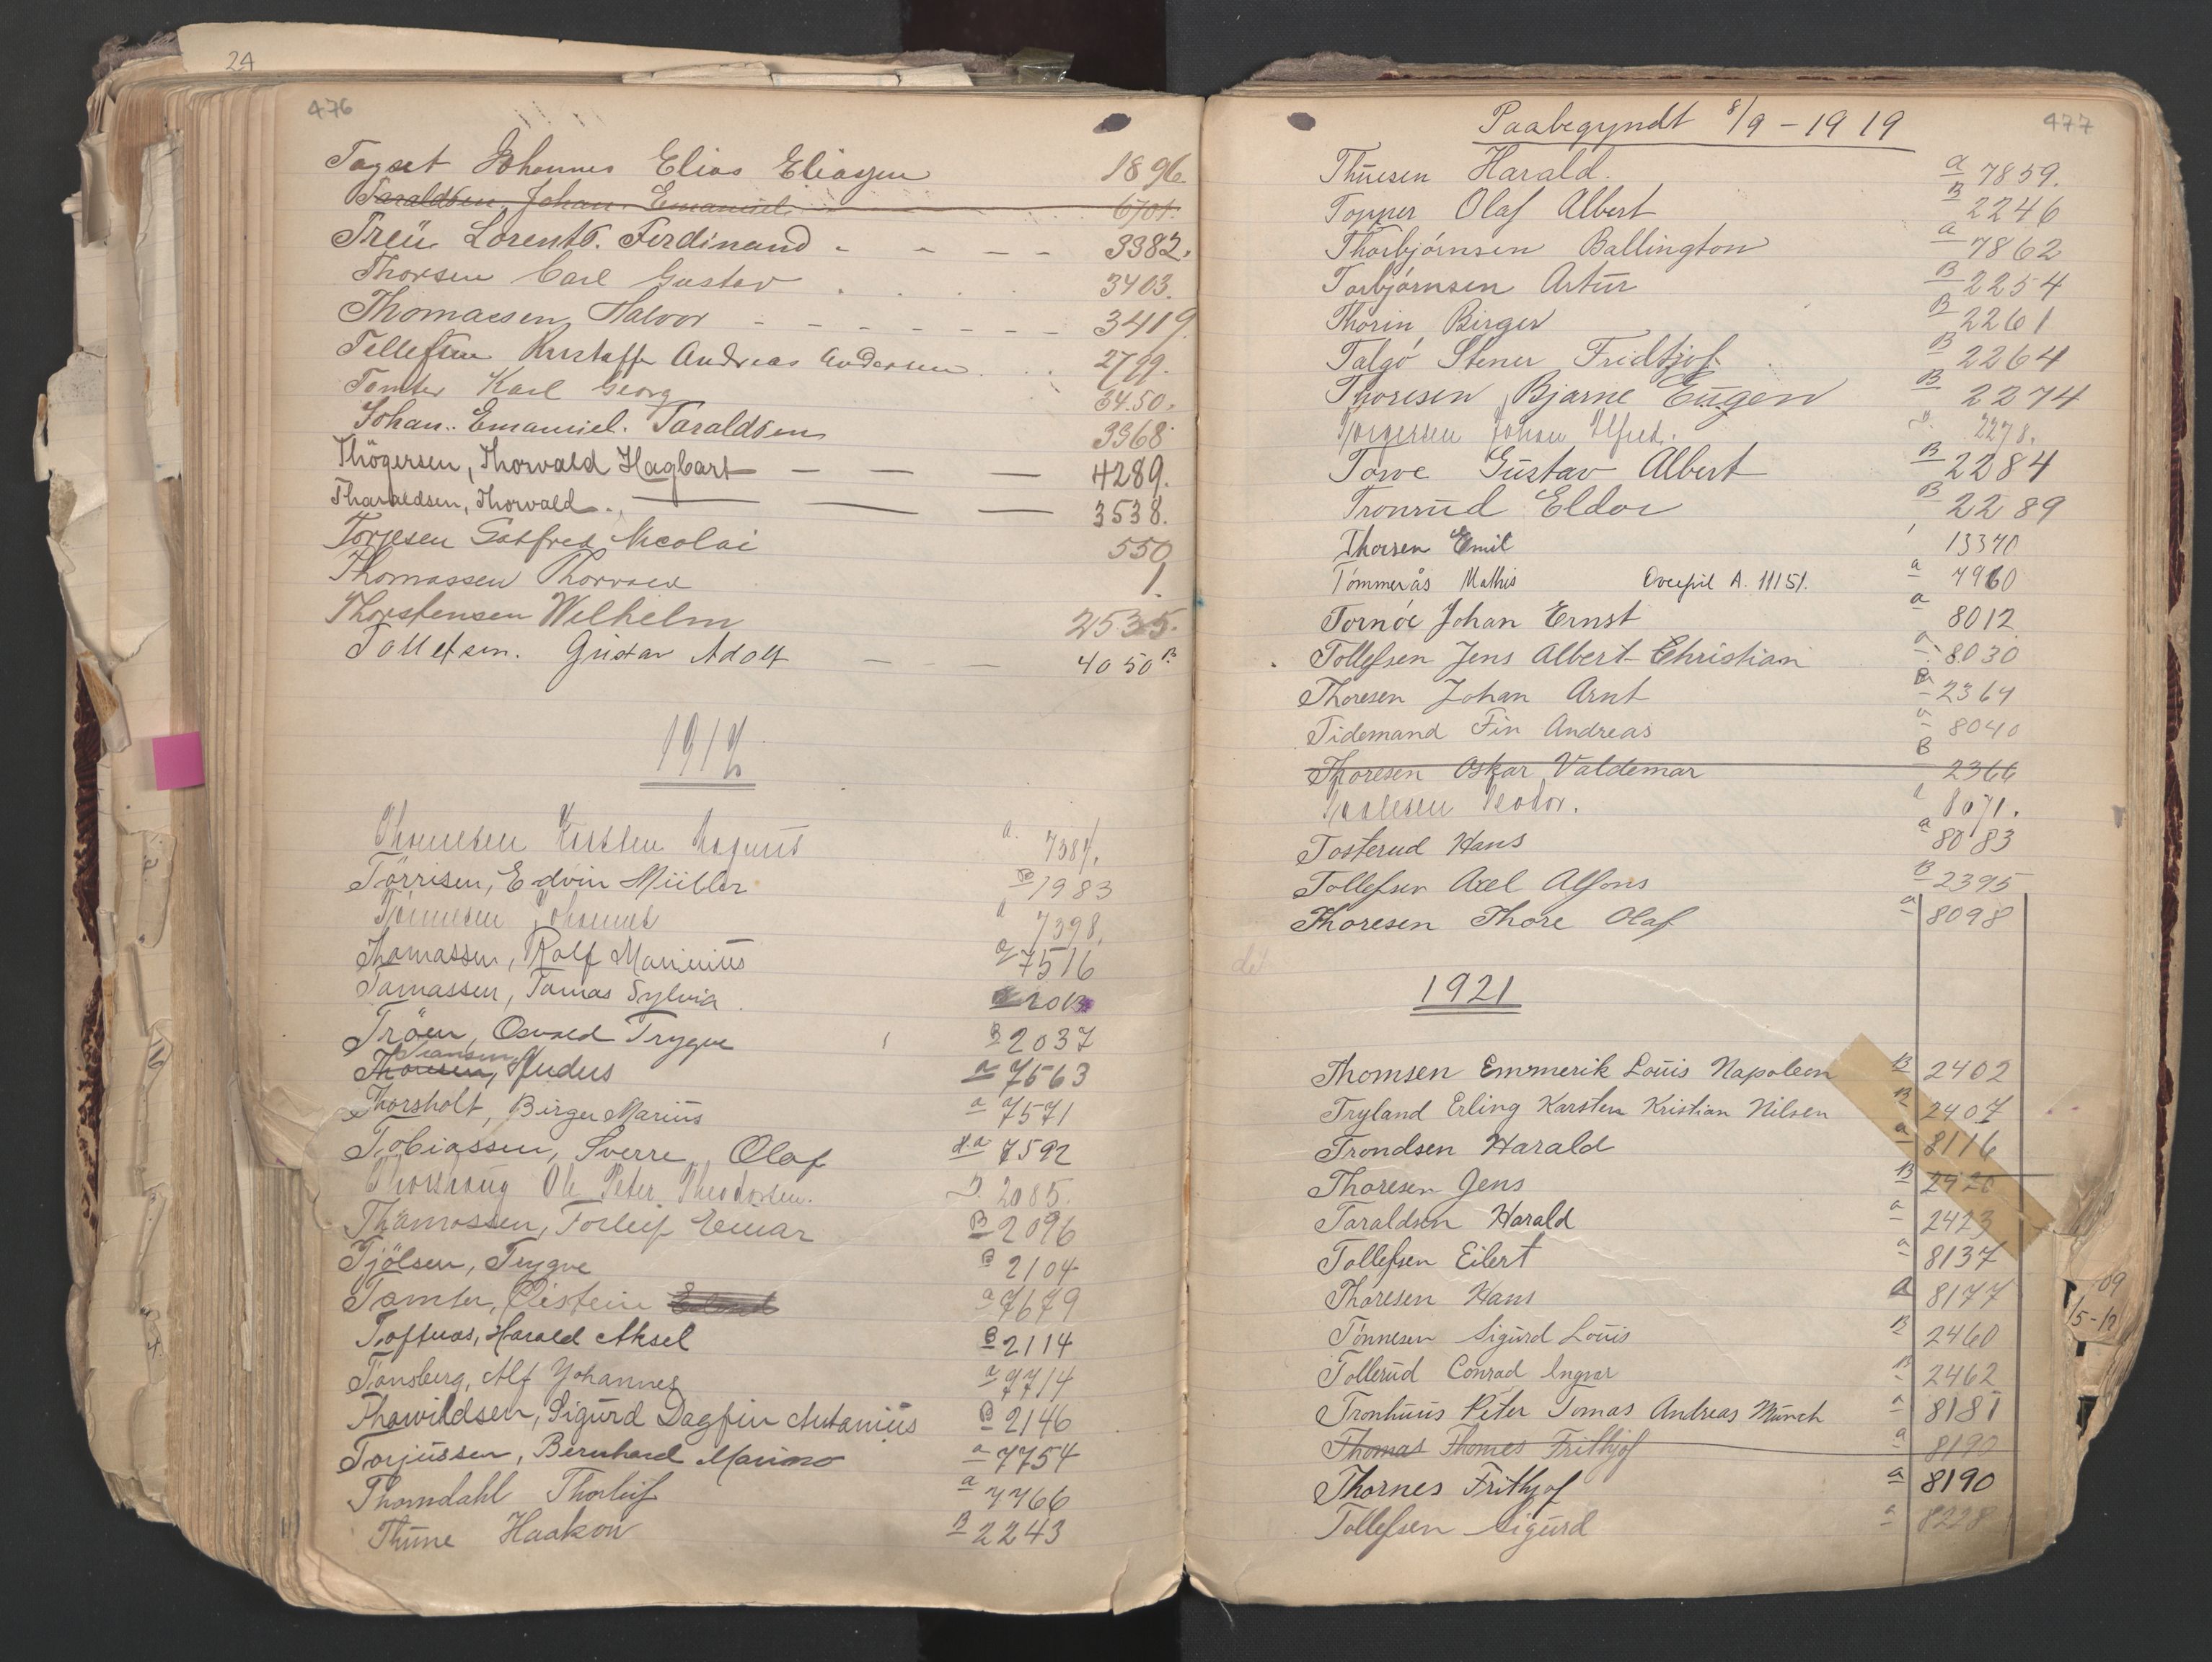 24
476
Tagset Johannes Elias Eliassen 1896
Taraldsen, Johan Emanuel 6701.
Treu Lorents. Ferdinand - - - - 3382.
Thorsen Carl Gustav . . . . 3403.
Thomassen Halvor - - - - - - - 3419
Tellefsen Kristoffe Andreas Andersen . . . 2799.
Tomter Karl Georg 3450.
Johan. Emanuel. Taraldsen 3368
Thögersen, Thorvald Hagbart — — — 4289.
Tharaldsen, Thorvald. — — — 3538.
Torjesen Gotfred Nicolai 550
Thomassen Thorvald 1.
Thorstensen Wilhelm 2535.
Tollefsen. Gustav Adolf — — — 4050 B
191
Thomesen Karsten August a. 7384.
Törrisen, Edvin Müller B 1983
Tönnesen Johannes a 7398.
Thomassen, Rolf Marinius a 7516
Tomassen, Tomas Sylvia 2013
Tröen, Osvald Trygve B 2037
Thoresen, a 7563
Thorsholt, Birger Marius a 7571
Tobiassen, Sverre Olaf a 7592
Thorshaug Ole Peter Theodorsen. B 2085.
Thomassen, Torleif Einar B 2096
Tjölsen, Trygve B 2104
Tomter, Öistein a 7679
Toftnæs, Harald Aksel B 2114
Tönsberg, Alf Johannes a 7714
Thorvildsen, Sigurd Dagfin Antonius B 2146
Torjussen, Bernhard Marino a 7754
Thorndahl Thorleif a 7766
Thune Haakon B 2243
Paabegyndt 8/9 - 1919
477
Thuesen Harald. a 7859.
Topper Olaf Albert B 2246
Thorbjörnsen Ballington a 7862
Torbjörnsen Artur B 2254
Thorin Birger B 2261
Talgö Stener Fridtjof B 2264
Thoresen Bjarne Eugen B 2274
Torgersen Johan Alfred. B 2278.
Towe Gustav Albert B 2284
Tronrud Eldor B 2289
Thorsen Emil 13370
Tömmerås Mathis Overfiil A. 11151. a 7960
Tornöe Johan Ernst a 8012
Tollefsen Jens Albert Christian a 8030
Thoresen Johan Arnt B 2364
Tidemand Fin Andreas a 8040
Thoresen Oskar Valdemar B 2366
a 8071.
Tosterud Hans a 8083
Tollefsen Axel Alfons B 2395
Thoresen Thore Olaf a 8098
1921
Thomsen Emmerik Louis Napoleon B 2402
Tryland Erling Karsten Kristian Nilsen B 2407
Trondsen Harald a 8116
Thoresen Jens B 2420
Taraldsen Harald a 2423
Tollefsen Eilert a 8137
Thoresen Hans A 8177
Tönnesen Sigurd Louis B 2460
Tollerud Conrad Ingvar B 2462
Tronhuus Peter Tomas Andreas Munch a 8181
Thomas Thomes Frithjof a 8190
Thornes Frithjof a 8190
Tollefsen Sigurd a 8228
09
15-17